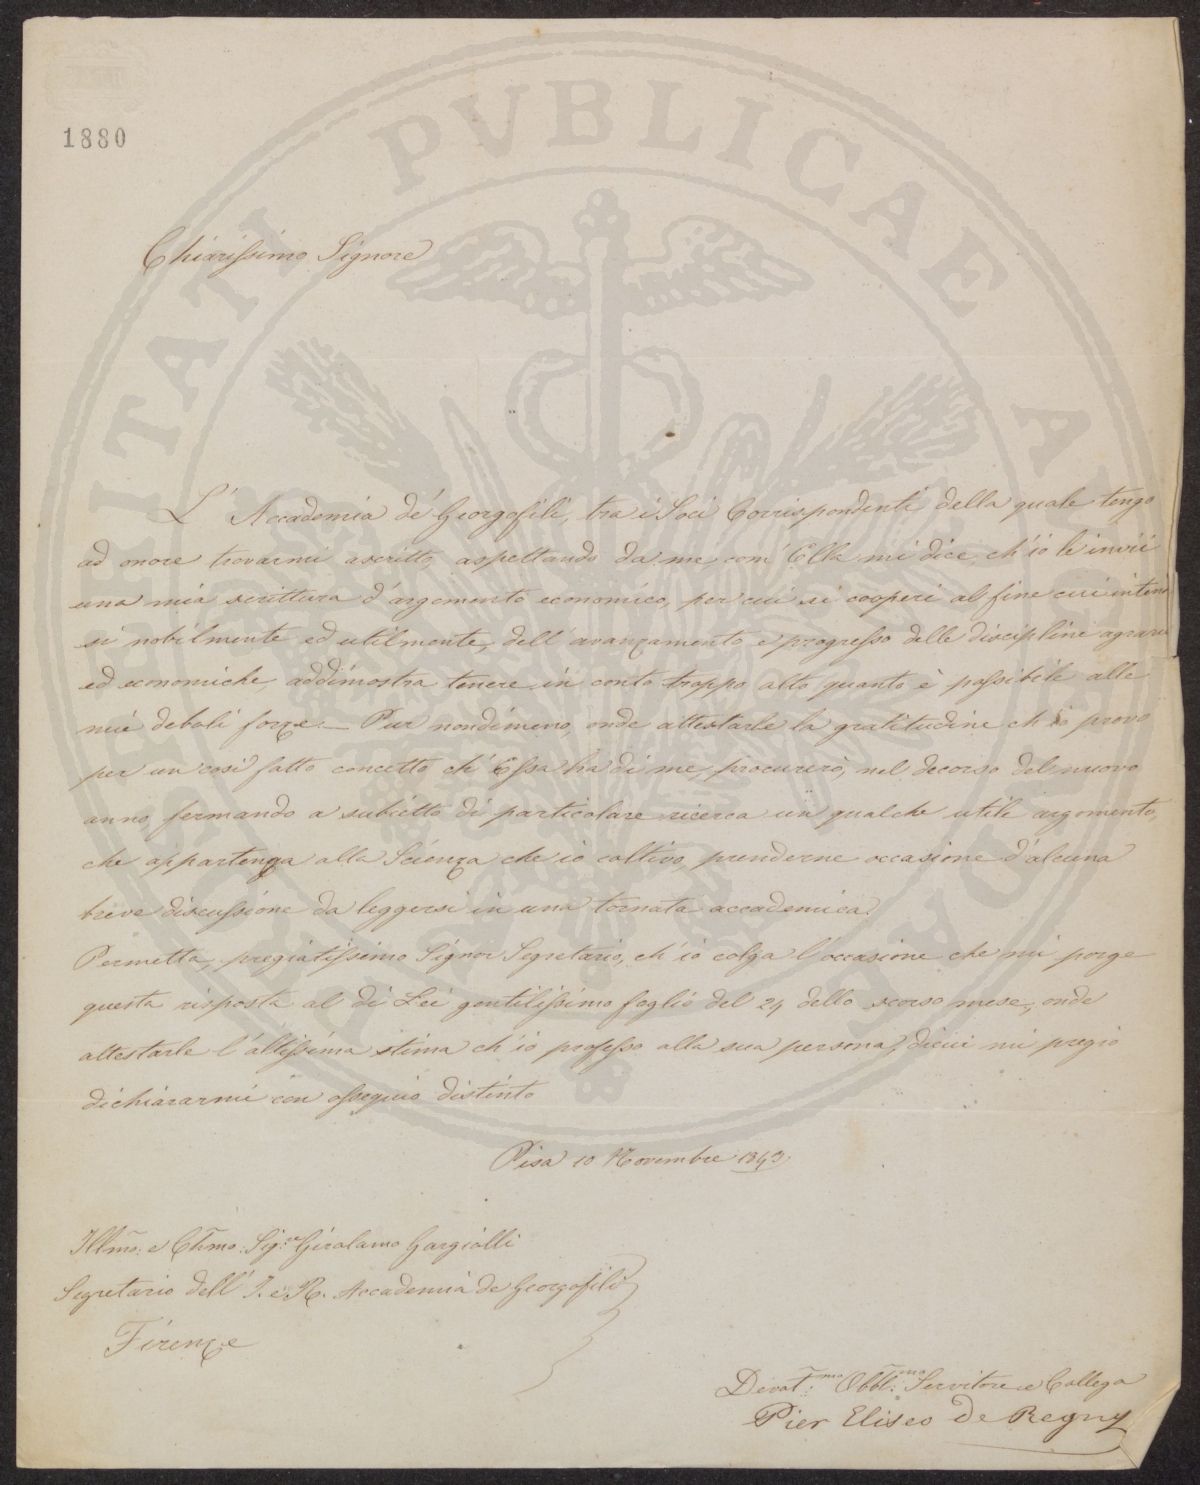 1880
Chiarissimo Signore
L'Accademia de' Georgofili, tra i Soci Corrispondenti della quale tengo
ad onore trovarmi ascritto, aspettando da me, com' Ella mi dice, ch'io le invii
una mia scrittura d'argomento economico, per cui si cooperi al fine cui intende
sì nobilmente ed utilmente, dell'avanzamento e progresso delle discipline agrarie
ed economiche, addimostra tenere in conto troppo alto quanto è possibile alle
mie deboli forze. — Pur nondimeno, onde attestarle la gratitudine ch'io provo
per un così fatto concetto ch' Essa ha di me, procurerò, nel decorso del nuovo
anno, fermando a subietto di particolare ricerca un qualche utile argomento,
che appartenga alla Scienza che io coltivo, prenderne occasione d'alcuna
breve discussione da leggersi in una tornata accademica.
Permetta, pregiatissimo Signor Segretario, ch' io colga l'occasione che mi porge
questa risposta al di Lei gentilissimo foglio del 24 dello scorso mese, onde
attestarle l'altissima stima ch'io professo alla sua persona, di cui mi pregio
dichiararmi con ossequio distinto
Pisa 10 Novembre 1843.
Illmo. e Chmo. Sigre Girolamo Gargiolli
Segretario dell' I. e R. Accademia de Georgofili
Firenze
Devotmo: Obblmo: Servitore e Collega
Pier Eliseo De Regny
PVBLICAE